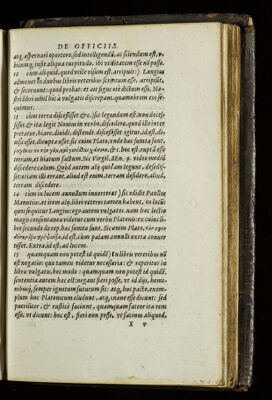 DE OFFICIIS.
atq; aspernari oportere, sed intelligendũ, ac sciendum est, v-
bicumq; insit aliqua turpitudo. ibi vtilitatem esse nõ posse.
12 cum aliquid, quod vtile visum est. arripuit:) Langius
admonet in duobus libris veteribus scriptum esse. arripiũt,
& secuerunt: quod probat: et ait sic eum dictum esse. No-
stri libri nihil hic à vulgatis discrepant. quamobrem eos se-
quimur.
13 cum terra discessisset &c.) sic legendum est. non deces-
sisset, & ita legit Nonius in verbo, discedere, quod ille inter-
pretatur, hiare, diuidi, distendi. discessisset igitur, id est, di-
uisa esset, disrupta esset sic enim Plato, vnde haec sunt sumta,
terram, et hiatum factum. Sic Virgil. AEn. 9. video medium
discedere calum. Quòd autem alij quidam legunt. desedis-
set: etiam illi errant. aliud est enim, terram desidere, aliud,
terram discedere.
14 cum in lucem annullum inuerterat) sic edidit Paullus
Manutius. et item alij. libri veteres tantum habent, in locũ:
quos sequitur Langius: ego autem vulgatos. nam hec lectio
magis consentanea videtur cum verbis Platonis: ex cuius li-
bro secundo de rep. hac sumta sunt. Sic enim Plato,
id est, cum palam annuli extra conuer
tisset. Extra. id est, ac lucem.
15 quamquam non potest id quidẽ) En libris veteribus nõ
est negatio: qua tamen videtur necessaria: & reperitur in
libris vulgatis. hoc modo: quamquam non potest id quidẽ.
sententia autem hac est: negant fieri posse, vt id dijs, homi-
nibusq; semper ignotum futurum sit: atq; hoc pacto, exem-
plum hoc Platonicum eludunt. atq; inane esse dicunt: sed
pueriliter, & rustice faciunt, quamquam fateor ita rem
esse, vt dicunt: hoc est, fieri non posse, vt facinus aliquod,
X v